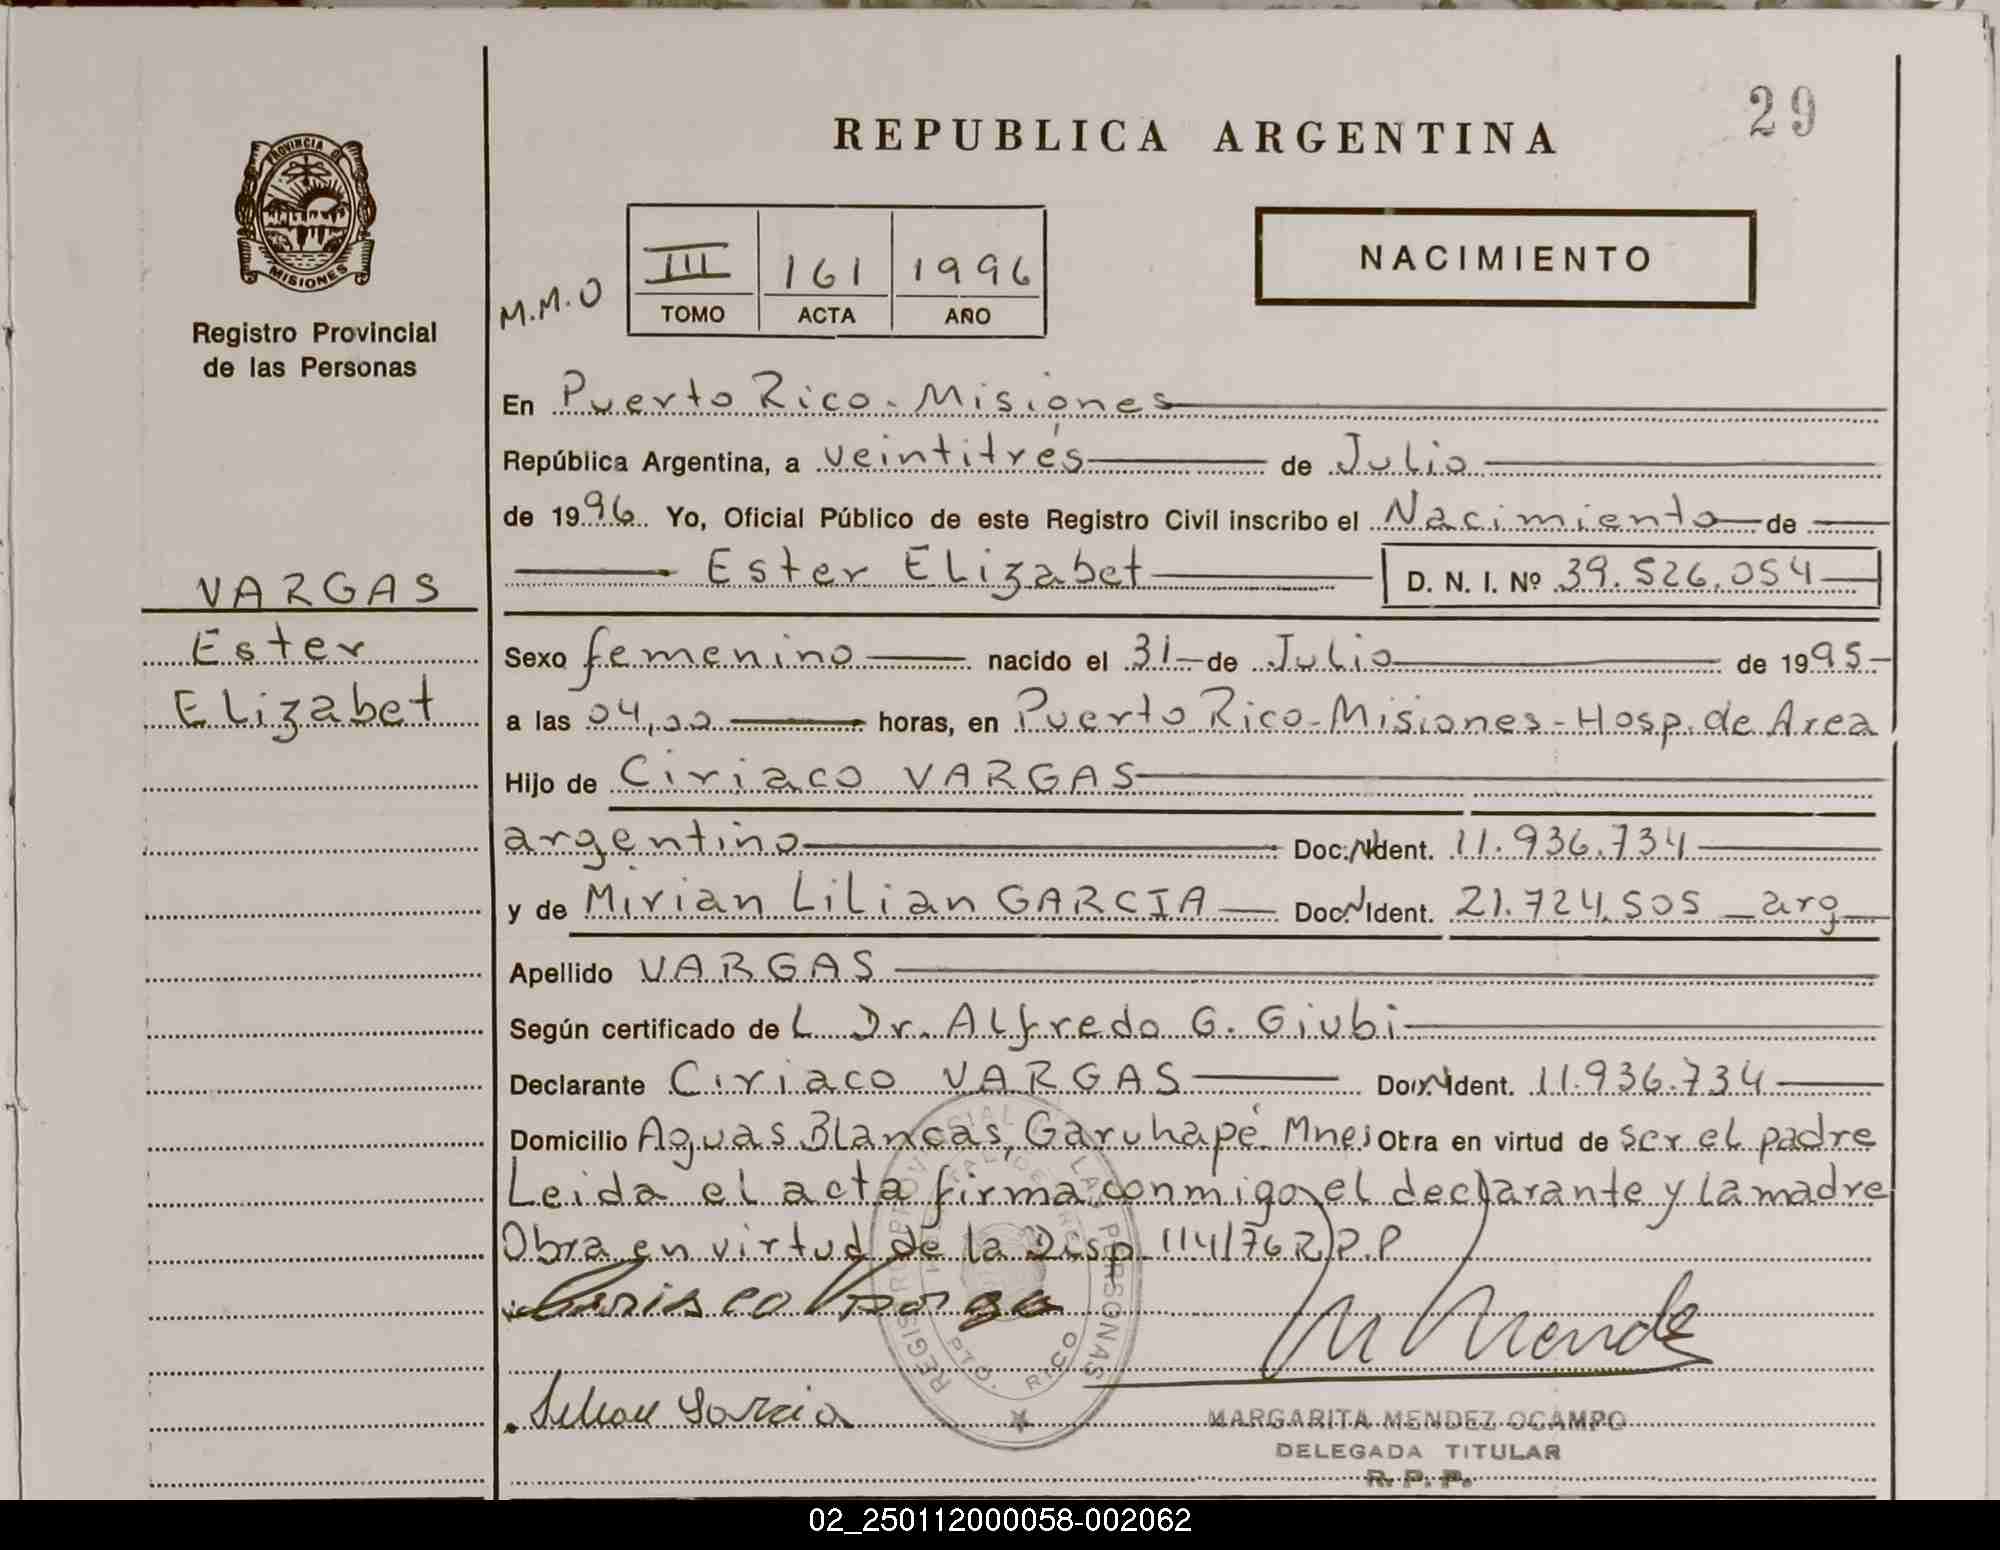 29
REPUBLICA ARGENTINA
PROVINCIA DE
MISIONES
Registro Provincial
de las Personas
M.M.O
III 161 1996
TOMO ACTA AÑO
NACIMIENTO
En Puerto Rico - Misiones
República Argentina, a veintitrés de Julio
de 1996 Yo, Oficial Público de este Registro Civil inscribo el Nacimiento de
Ester Elizabet D. N. I. Nº 39.526.054
VARGAS
Ester
Elizabet
Sexo femenino nacido el 31 de Julio de 1995
a las 04,00 horas, en Puerto Rico - Misiones - Hosp. de Area
Hijo de Ciriaco VARGAS
argentino Doc. N Ident. 11.936.734
y de Mirian Lilian GARCIA Doc. N Ident. 21.724.505 arg
Apellido VARGAS
Según certificado de L Dr. Alfredo G. Giubi
Declarante Ciriaco VARGAS Doc. N Ident. 11.936.734
Domicilio Aguas Blancas, Garuhapé Mnes Obra en virtud de ser el padre
Leida el acta firma conmigo el declarante y la madre
Obra en virtud de la Disp 114/76 R.P.P
Lilian Garcia
M Mendez
REGISTRO PROVINCIAL DE LAS PERSONAS
PTO. RICO
MARGARITA MENDEZ OCAMPO
DELEGADA TITULAR
R. P. P.
02_250112000058-002062